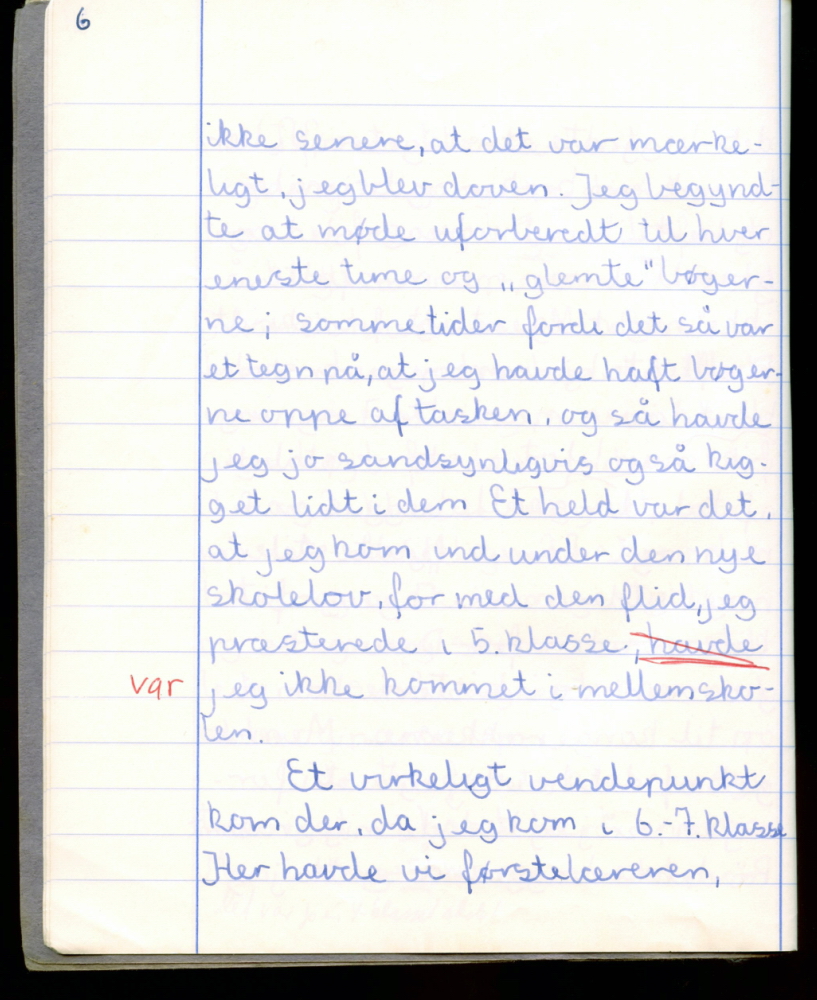 6
ikke senere, at det var mærke-
ligt, jeg blev doven. Jeg begynd-
te at møde uforberedt til hver
eneste time og „glemte“ bøger-
ne; somme tider fordi det så var
et tegn på, at jeg havde haft bøger-
ne oppe af tasken, og så havde
jeg jo sandsynligvis også kig-
get lidt i dem Et held var det,
at jeg kom ind under den nye
skolelov, for med den flid, jeg
præsterede i 5. klasse, havde
var jeg ikke kommet i mellemsko-
len.
Et virkeligt vendepunkt
kom der, da jeg kom i 6.-7. klasse
Her havde vi førstelæreren,